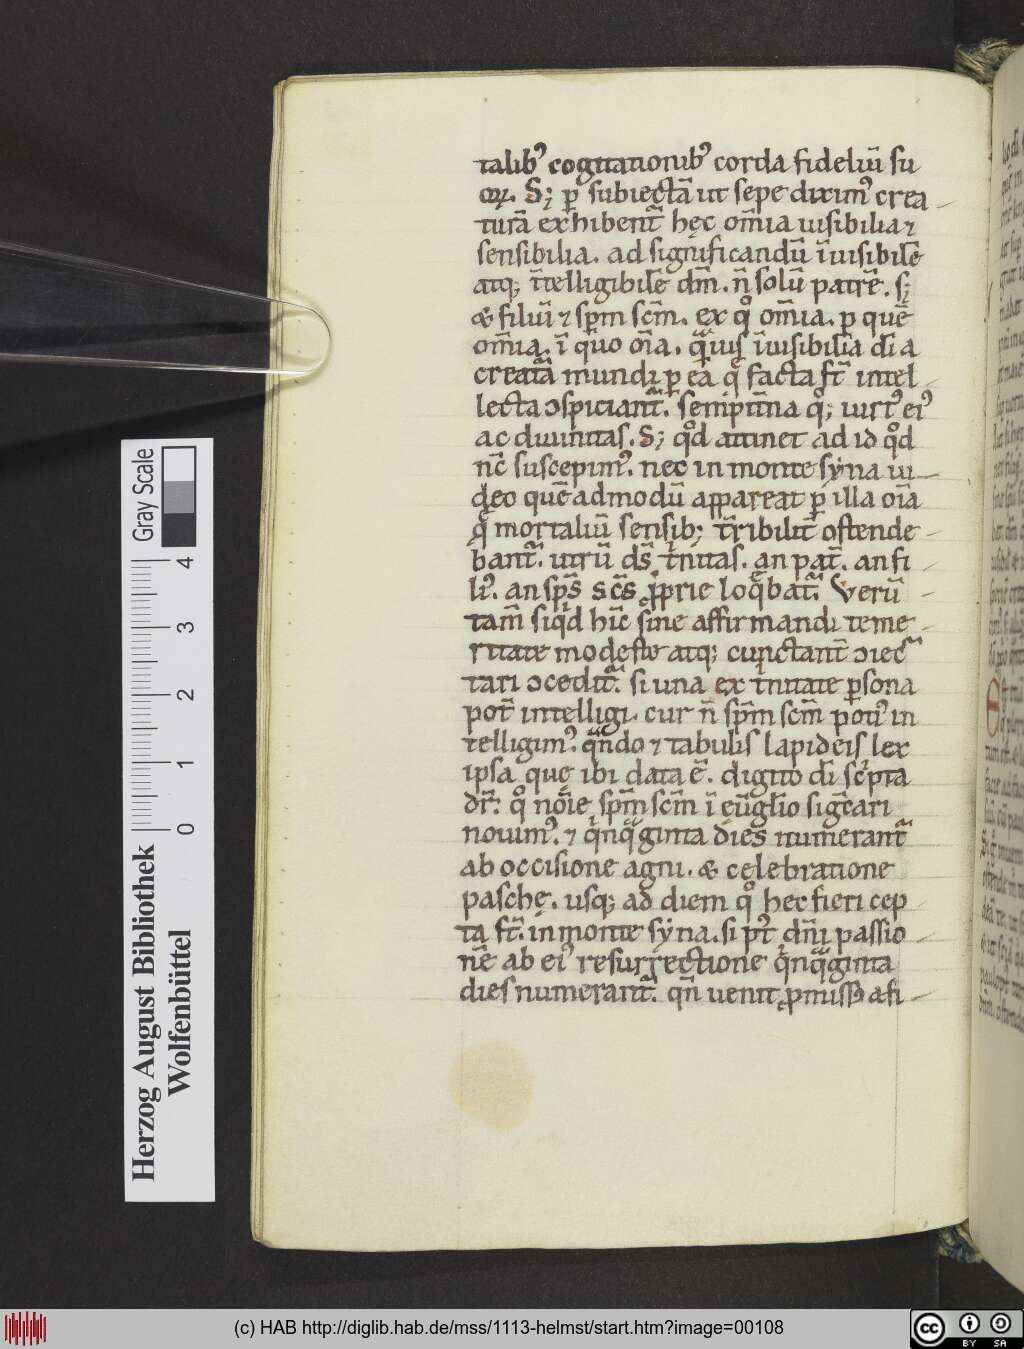 talibꝰ cogitationibꝰ corda fideliū su
oꝝ. S; ꝑ subiectā ut sepe diximꝰ crea
turā exhibent᷑ hęc om̄ia uisibilia ⁊
sensibilia. ad significandū īuisibilē
atq; ītelligibilē dm̄. n̄ solū patrē. s;
& filiū ⁊ sp̄m scm̄. ex qͦ om̄ia. ꝑ quē
om̄ia. ī quo oīa. qᷓuis īuisibilia dī a
creatā mundi ꝑ ea q̄ facta ft̄ intel
lecta ɔspiciant᷑. sempit̄na qͦ; uirtꝰ eiꝰ
ac diuinitas. S; qͦd attinet ad id qͦd
nc̄ suscepimꝰ. nec in monte syna ui
deo quēadmodū appareat ꝑ illa oīa
q̄ mortaliū sensib; t̄ribilit̄ ostende
bant᷑. utrū ds̄ t̄nitas. an pat̄. an fi
liꝰ. an sp̄s sc̄s ꝓprie loq̄bat᷑. Verū
tam̄ siqͥd hīc sine affirmandi teme
ritate modeste atq; cunctant̄ ɔiec
tari ɔcedit᷑. si una ex t̄nitate ꝑsona
pot̄ intelligi. cur n̄ sp̄m scm̄ potiꝰ in
telligimꝰ. qᷓndo ⁊ tabulis lapideis lex
ipsa que ibi data ē. digito dī scͥpta
dr̄. qͦ noīe sp̄m scm̄ ī eūglio sigc̄ari
nouimꝰ. ⁊ qͥnqᷓginta dies numerant᷑
ab occisione agni. & celebratione
paschę. usq; ad diem qͦ hec fieri cep
ta ft̄. in monte syna. si pt̄ dn̄i passio
nē ab eiꝰ resurrectione qͥnqᷓginta
dies numerant᷑. qn̄ uenit ꝓmissꝰ a fi
Herzog August Bibliothek
Wolfenbüttel
0 1 2 3 4
Gray Scale
(c) HAB http://diglib.hab.de/mss/1113-helmst/start.htm?image=00108
cc BY SA